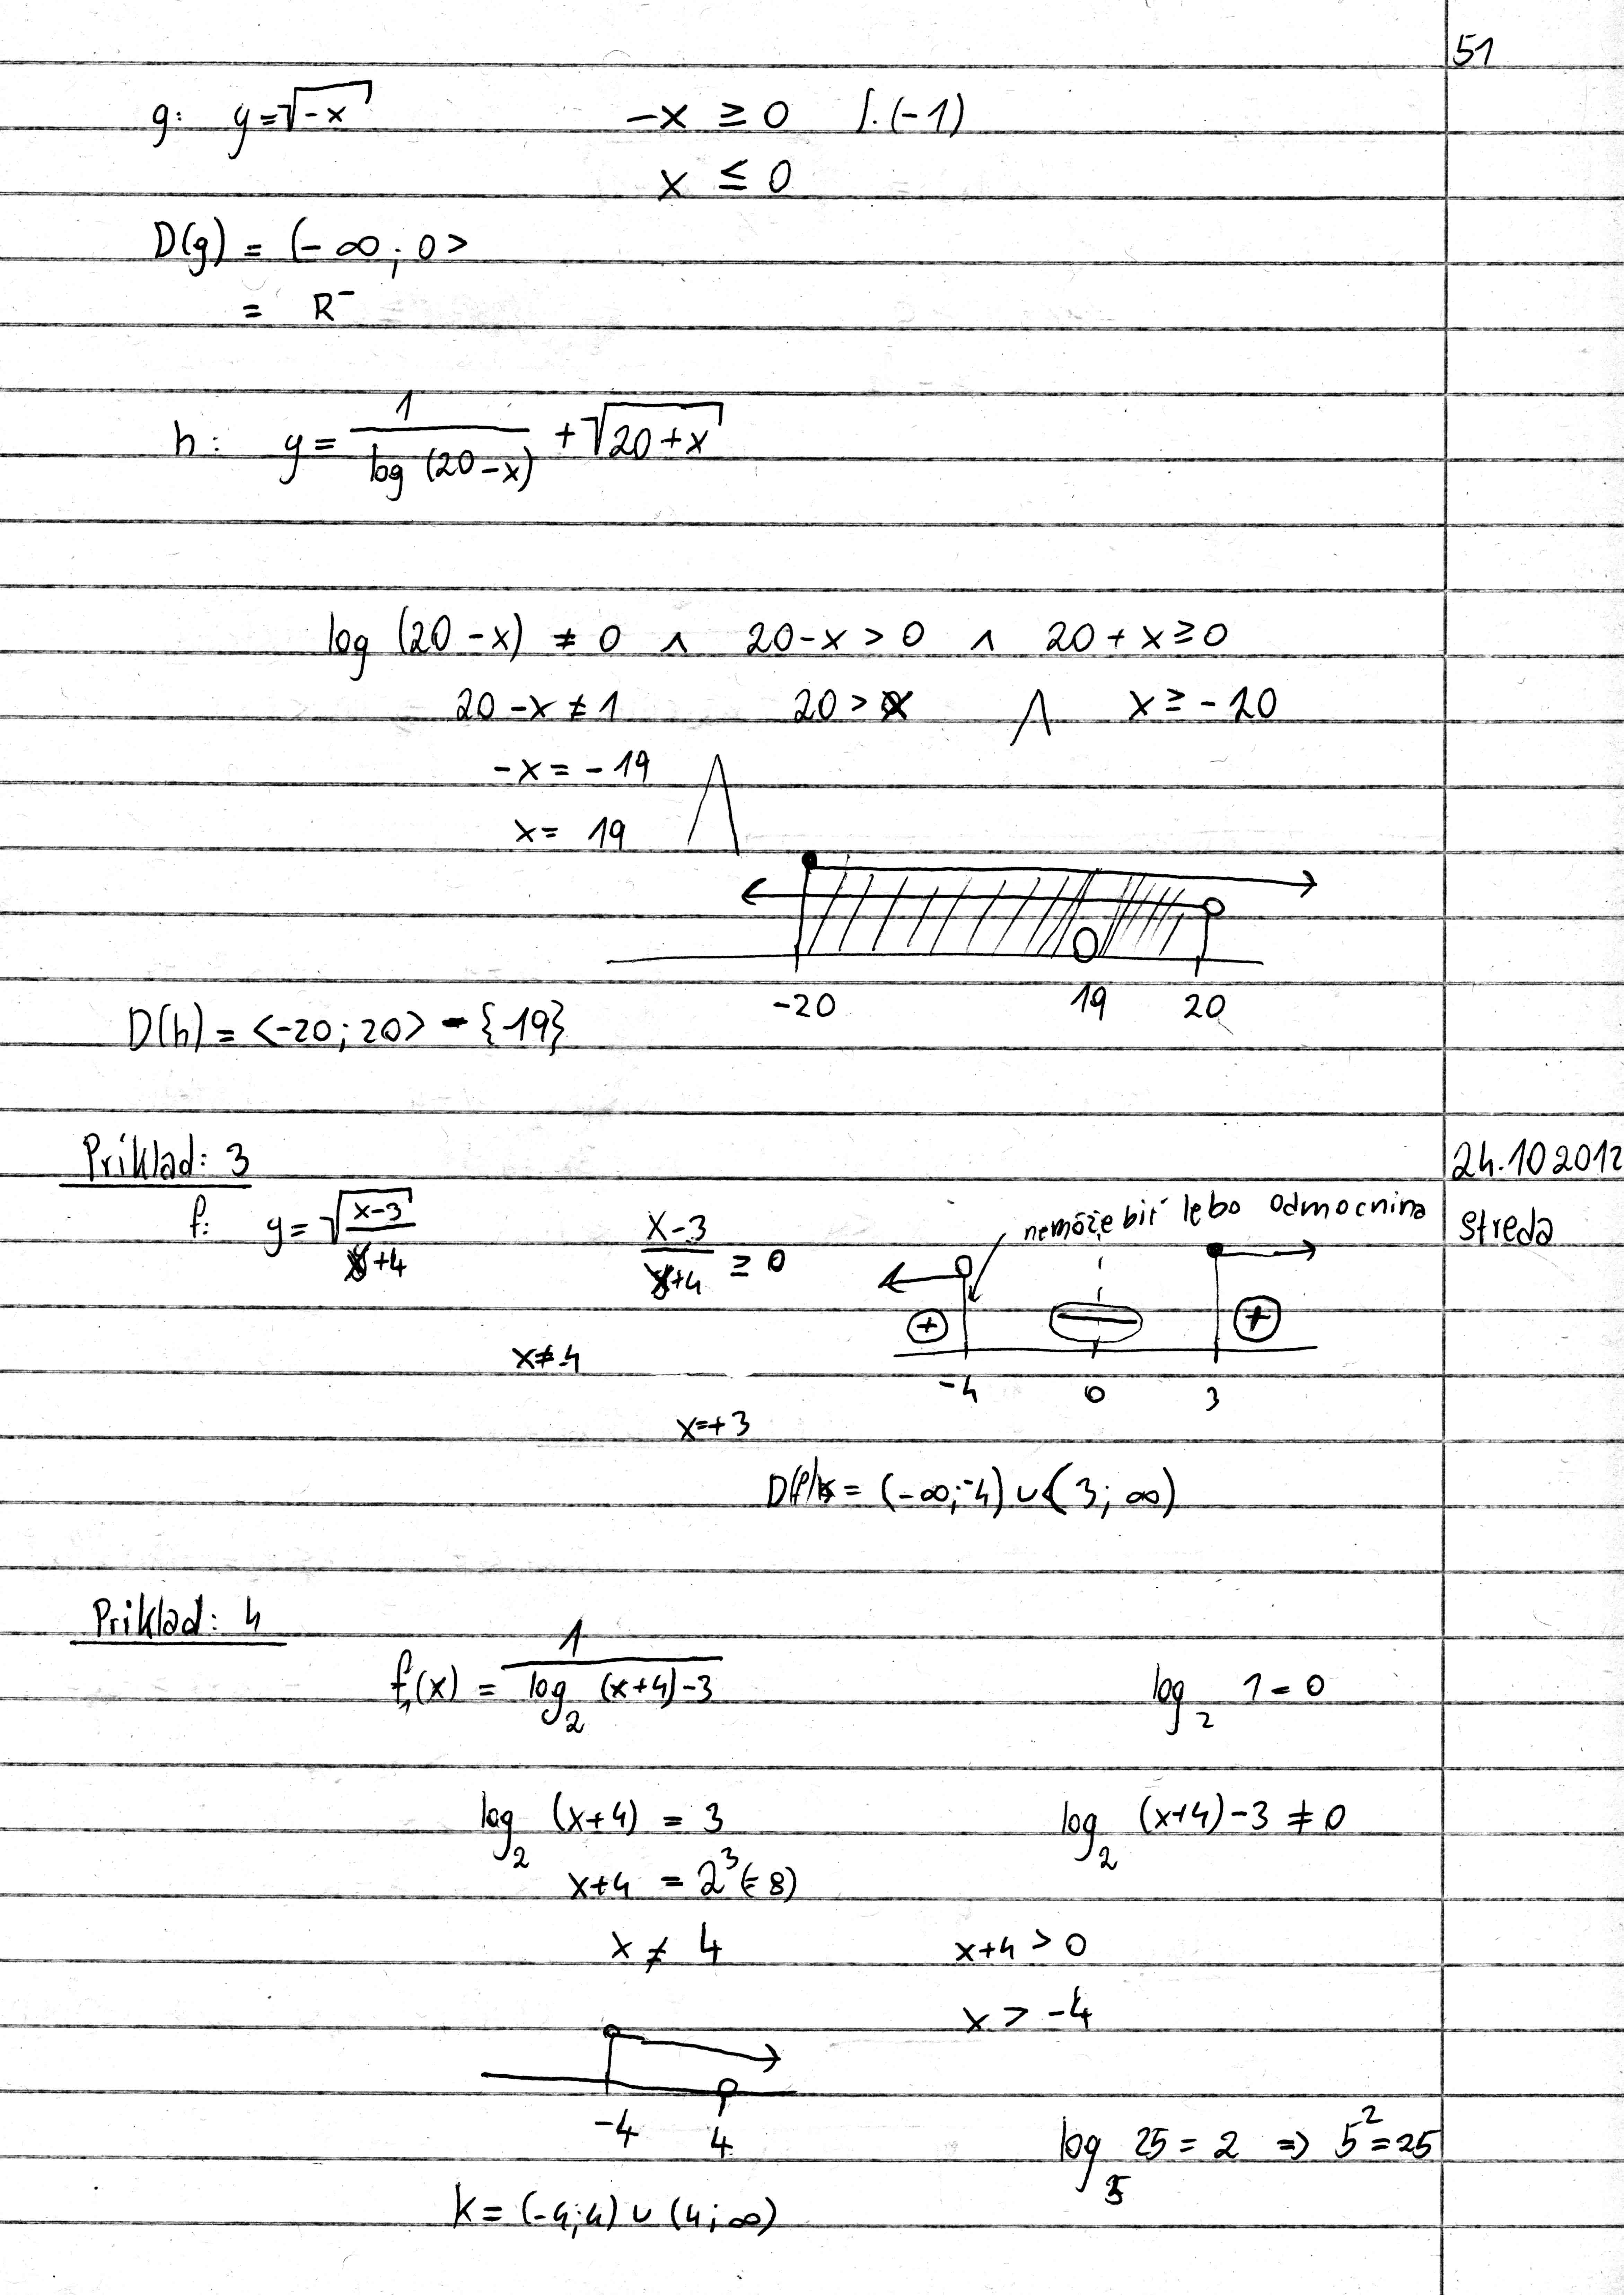 51
g: y=√-x    -x ≥ 0  /.(-1)
x ≤ 0
D(g) = (-∞; 0>
= R⁻
h: y = 1/log (20-x) + √20+x
log (20-x) ≠ 0 ∧ 20-x > 0 ∧ 20+x ≥ 0
20-x ≠ 1    20 > x  ∧  x ≥ -20
-x = -19  ∧
x = 19
-20  19  20
D(h) = <-20; 20> - {19}
Priklad: 3    24.10 2012
f: y = √x-3/x+4    x-3/x+4 ≥ 0    nemôže biť lebo odmocnina    streda
+  -  +
x≠-4
-4  0  3
x=+3
D(f) = (-∞;-4) ∪ <3; ∞)
Priklad: 4
f₁(x) = 1/log₂ (x+4)-3    log₂ 1 = 0
log₂ (x+4) = 3    log₂ (x+4)-3 ≠ 0
x+4 = 2³(=8)
x ≠ 4    x+4 > 0
x > -4
-4  4
log₅ 25 = 2 ⇒ 5² = 25
K = (-4;4) ∪ (4;∞)